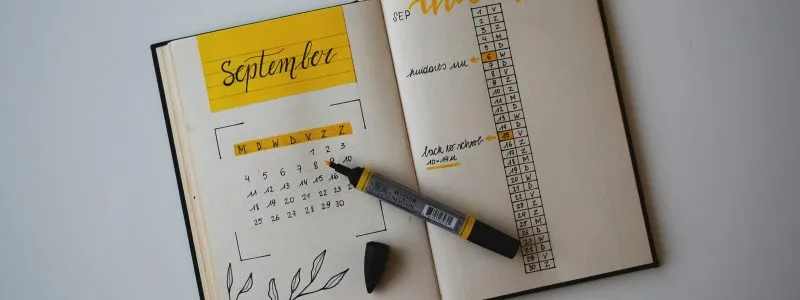 September
M D W D V Z Z
1 2 3
4 5 6 7 8 9 10
11 12 13 14 15 16
18 19 20 21 22 23
25 26 27 28 29 30
SEP
1 V
2 Z
3 Z
4 M
5 D
6 W
7 D
8 V
9 Z
10 Z
11 M
12 D
13 W
14 D
15 V
16 Z
17 Z
18 M
19 D
20 W
21 D
22 V
23 Z
24 Z
25 M
26 D
27 W
28 D
29 V
30 Z
huidarts 11u
back to school
10-14u